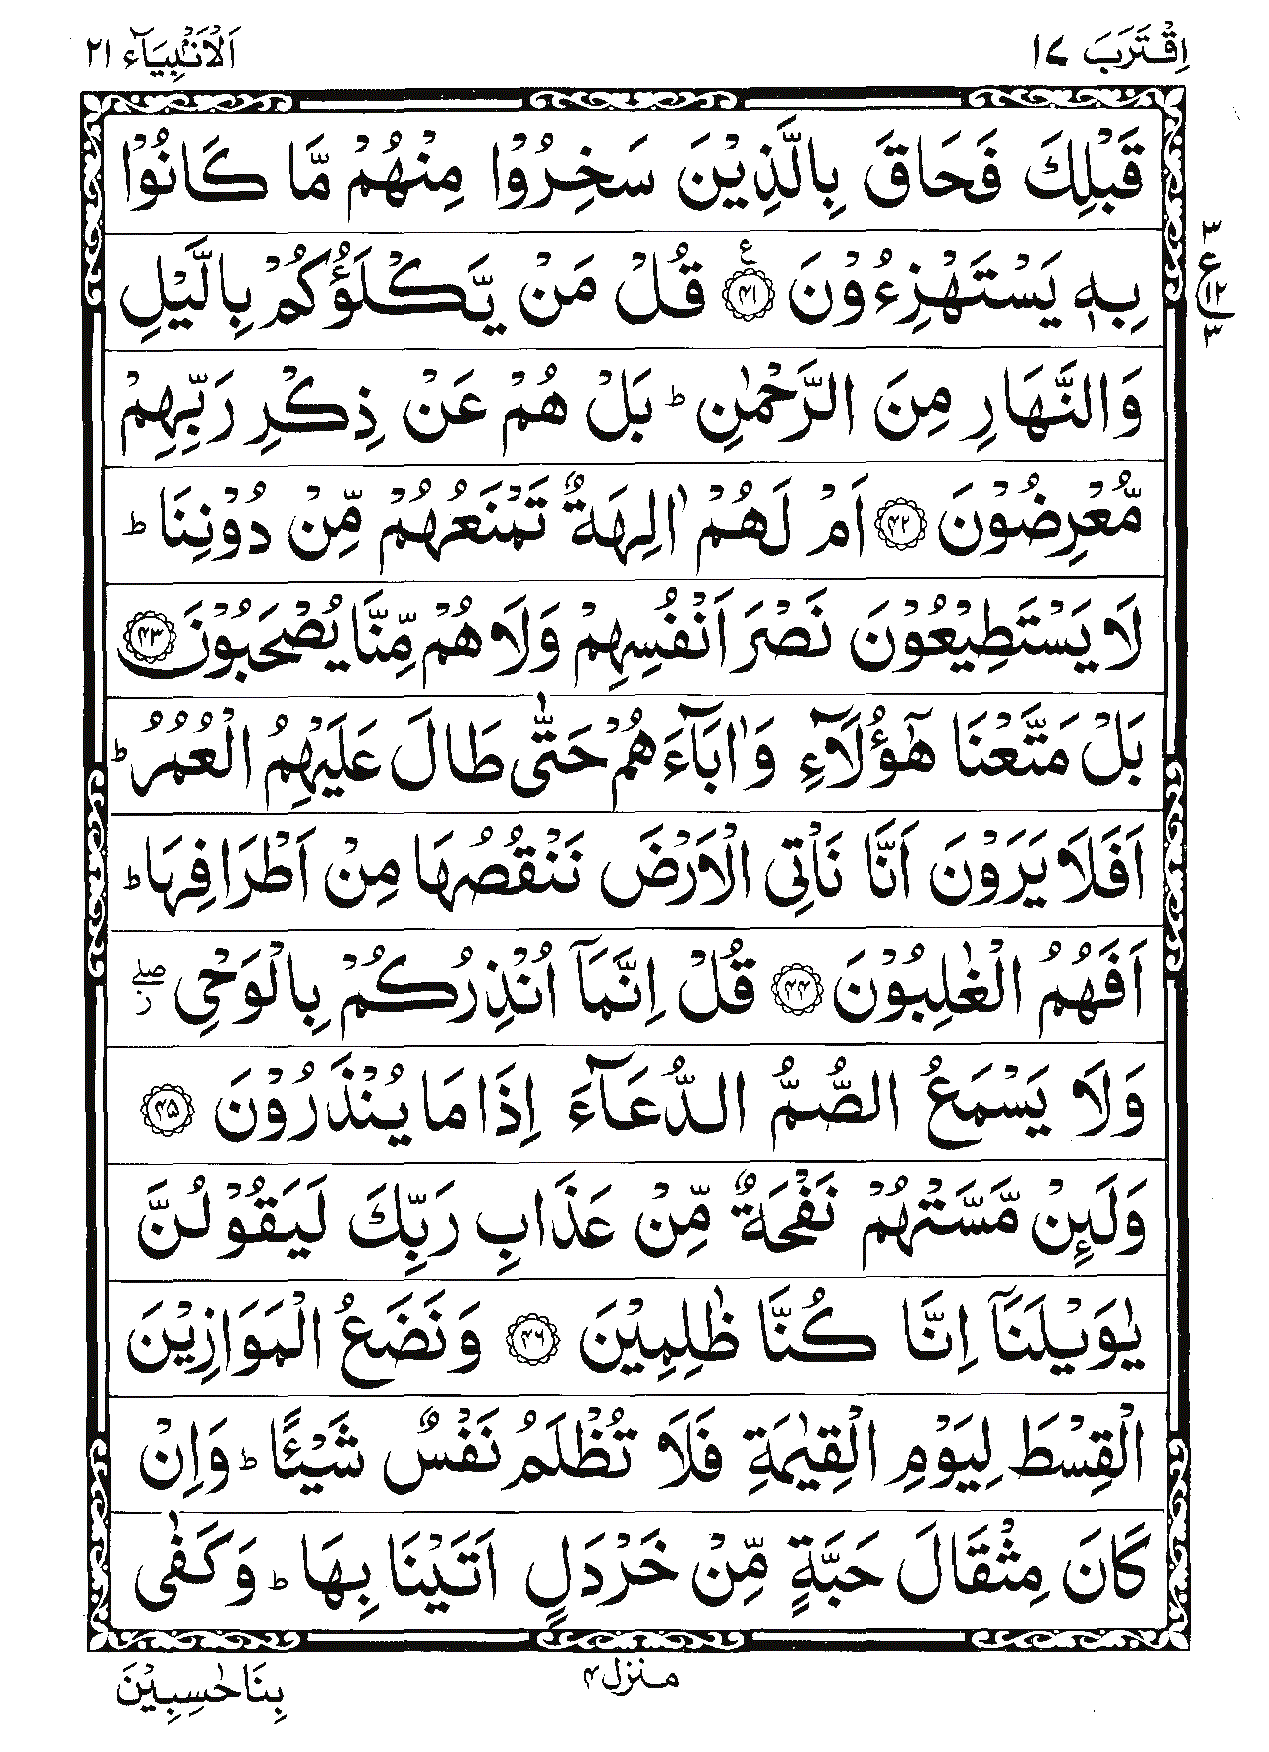 اِقْتَرَبَ ١٧
اَلْاَنْۢبِيَآء ٢١
قَبْلِكَ فَحَاقَ بِالَّذِيْنَ سَخِرُوْا مِنْهُمْ مَّا كَانُوْا
بِهٖ يَسْتَهْزِءُوْنَ ﴿۴۱﴾ ع قُلْ مَنْ يَّكْلَؤُكُمْ بِالَّيْلِ
٣ ع ١٢ ٣
وَالنَّهَارِ مِنَ الرَّحْمٰنِ ؕ بَلْ هُمْ عَنْ ذِكْرِ رَبِّهِمْ
مُّعْرِضُوْنَ ﴿۴۲﴾ اَمْ لَهُمْ اٰلِهَةٌ تَمْنَعُهُمْ مِّنْ دُوْنِنَا ؕ
لَا يَسْتَطِيْعُوْنَ نَصْرَ اَنْفُسِهِمْ وَلَا هُمْ مِّنَّا يُصْحَبُوْنَ ﴿۴۳﴾
بَلْ مَتَّعْنَا هٰٓؤُلَآءِ وَاٰبَآءَهُمْ حَتّٰى طَالَ عَلَيْهِمُ الْعُمُرُ ؕ
اَفَلَا يَرَوْنَ اَنَّا نَاْتِى الْاَرْضَ نَنْقُصُهَا مِنْ اَطْرَافِهَا ؕ
اَفَهُمُ الْغٰلِبُوْنَ ﴿۴۴﴾ قُلْ اِنَّمَاۤ اُنْذِرُكُمْ بِالْوَحْىِ ۖ ز
وَلَا يَسْمَعُ الصُّمُّ الدُّعَآءَ اِذَا مَا يُنْذَرُوْنَ ﴿۴۵﴾
وَلَئِنْ مَّسَّتْهُمْ نَفْحَةٌ مِّنْ عَذَابِ رَبِّكَ لَيَقُوْلُنَّ
يٰوَيْلَنَاۤ اِنَّا كُنَّا ظٰلِمِيْنَ ﴿۴۶﴾ وَنَضَعُ الْمَوَازِيْنَ
الْقِسْطَ لِيَوْمِ الْقِيٰمَةِ فَلَا تُظْلَمُ نَفْسٌ شَيْـًٔا ؕ وَاِنْ
كَانَ مِثْقَالَ حَبَّةٍ مِّنْ خَرْدَلٍ اَتَيْنَا بِهَا ؕ وَكَفٰى
منزل ۴
بِنَا حٰسِبِيْنَ